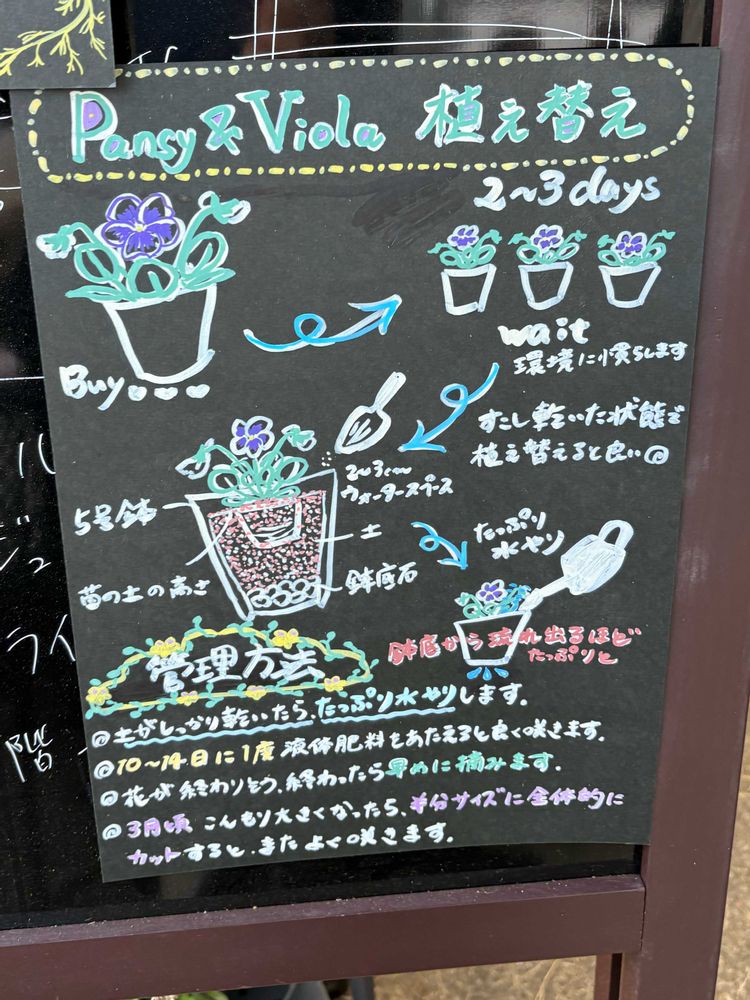 Pansy & Viola 植え替え
2~3days
Buy...
wait
環境に慣らします
すこし乾いた状態で
植え替えると良い◎
2~3cm
ウォータースペース
5号鉢
土
苗の土の高さ
鉢底石
たっぷり
水やり
鉢底から流れ出るほど
たっぷりと
管理方法
◎土がしっかり乾いたら、たっぷり水やりします。
◎10~14日に1度 液体肥料をあたえると良く咲きます。
◎花が終わりそう、終わったら早めに摘みます.
◎3月頃 こんもり大きくなったら、半分サイズに全体的に
カットすると、またよく咲きます。
ル
ジュ
ライ
階